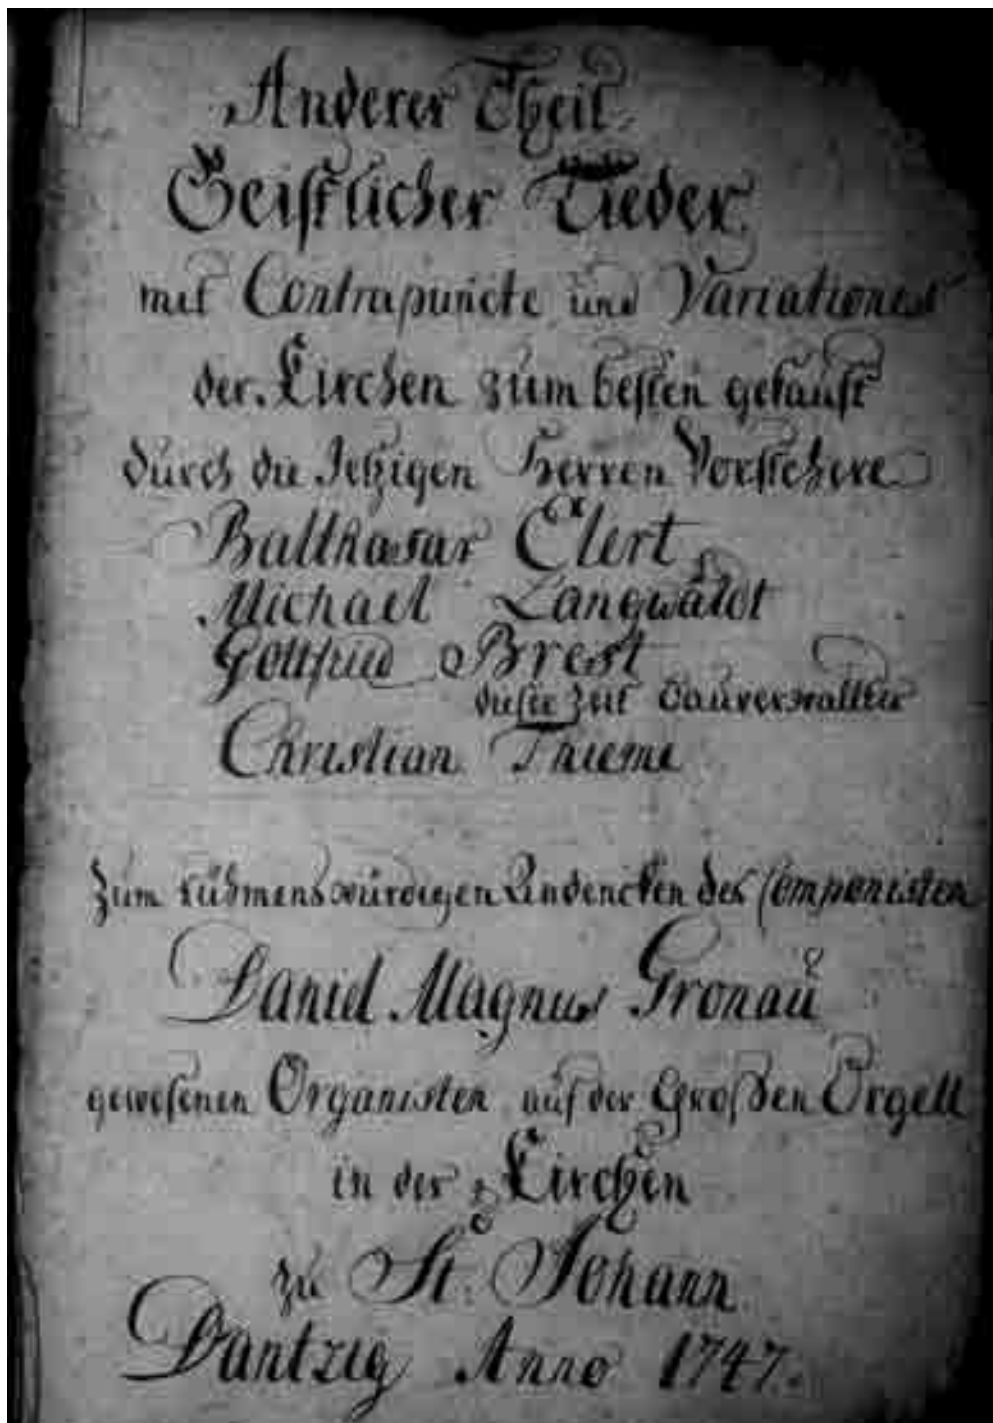 Anderer Theil
Geistlicher Lieder
mit Contrapuncte und Variationes
der Kirchen zum besten gekaufft
durch die Jetzigen Herren Vorstehere
Balthasar Elert
Michael Langwaldt
Gottfried Brest
dieser Zeit Bauverwalter
Christian Thieme
Zum rühmenswürdigen Andencken des Componisten
Daniel Magnus Gronau
gewesenen Organisten auf der Großen Orgell
in der Kirchen
zu St. Johann
Dantzig Anno 1747.